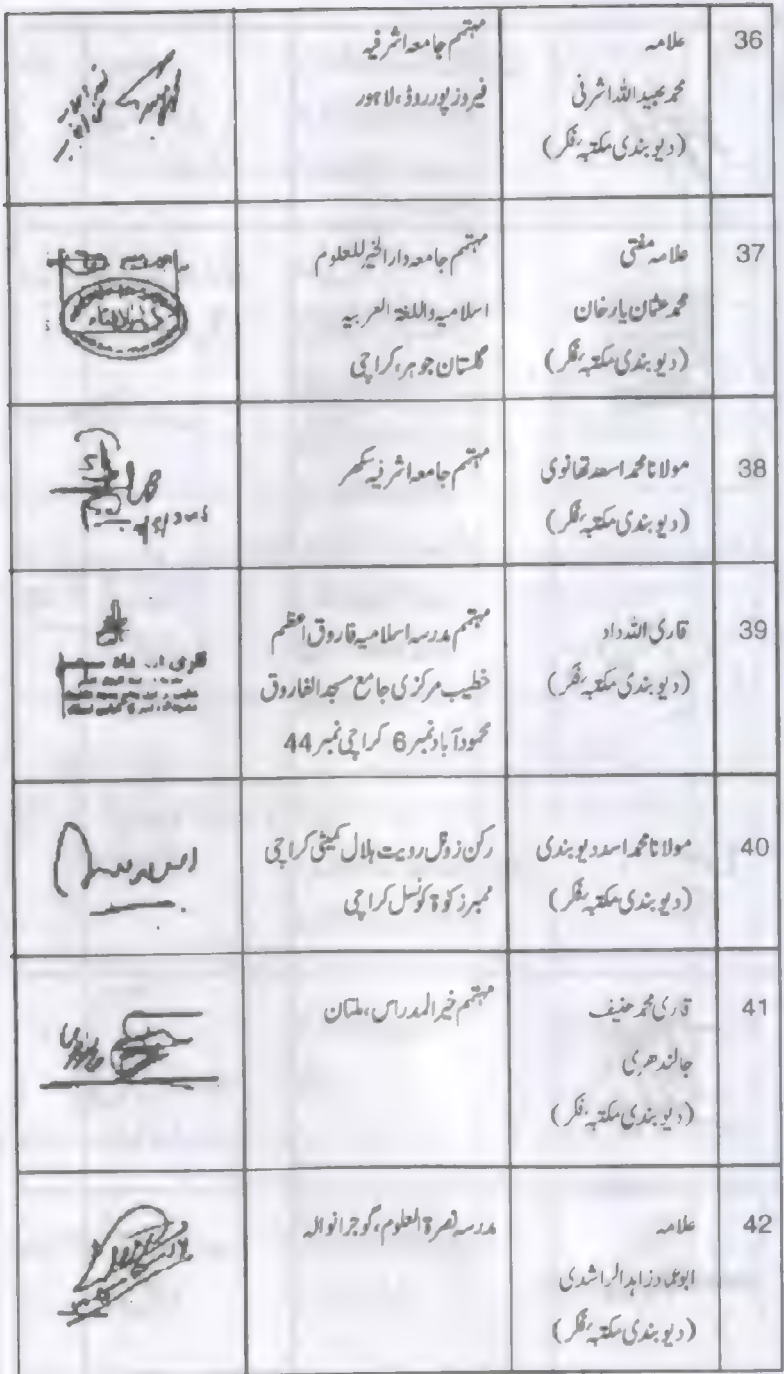 36
علامہ
محمد عبید اللہ اشرفی
(دیوبندی مکتبہ فکر)
مہتمم جامعہ اشرفیہ
فیروز پور روڈ، لاہور
37
علامہ مفتی
محمد عثمان یار خان
(دیوبندی مکتبہ فکر)
مہتمم جامعہ دارالخیر للعلوم
اسلامیہ واللغۃ العربیہ
گلستان جوہر، کراچی
38
مولانا محمد اسعد تھانوی
(دیوبندی مکتبہ فکر)
مہتمم جامعہ اشرفیہ سکھر
39
قاری اللہ داد
(دیوبندی مکتبہ فکر)
مہتمم مدرسہ اسلامیہ فاروق اعظم
خطیب مرکزی جامع مسجد الفاروق
محمود آباد نمبر 6 کراچی نمبر 44
40
مولانا محمد اسد دیوبندی
(دیوبندی مکتبہ فکر)
رکن زونل رویت ہلال کمیٹی کراچی
ممبر زکوۃ کونسل کراچی
41
قاری محمد حنیف
جالندھری
(دیوبندی مکتبہ فکر)
مہتمم خیر المدارس، ملتان
42
علامہ
ابو عمار زاہد الراشدی
(دیوبندی مکتبہ فکر)
مدرسہ نصرۃ العلوم، گوجرانوالہ